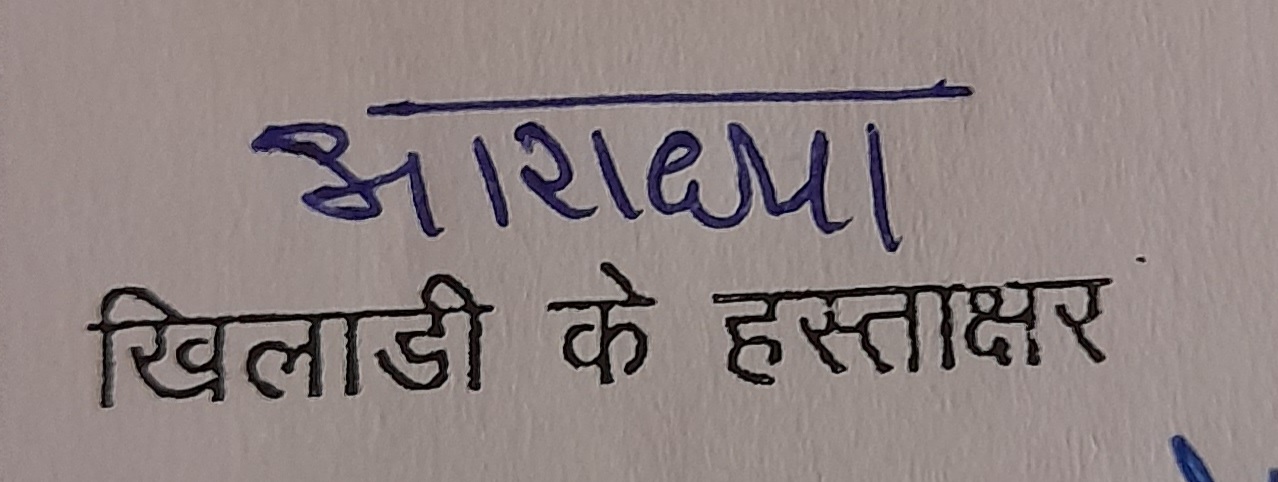 आराध्या
खिलाडी के हस्ताक्षर